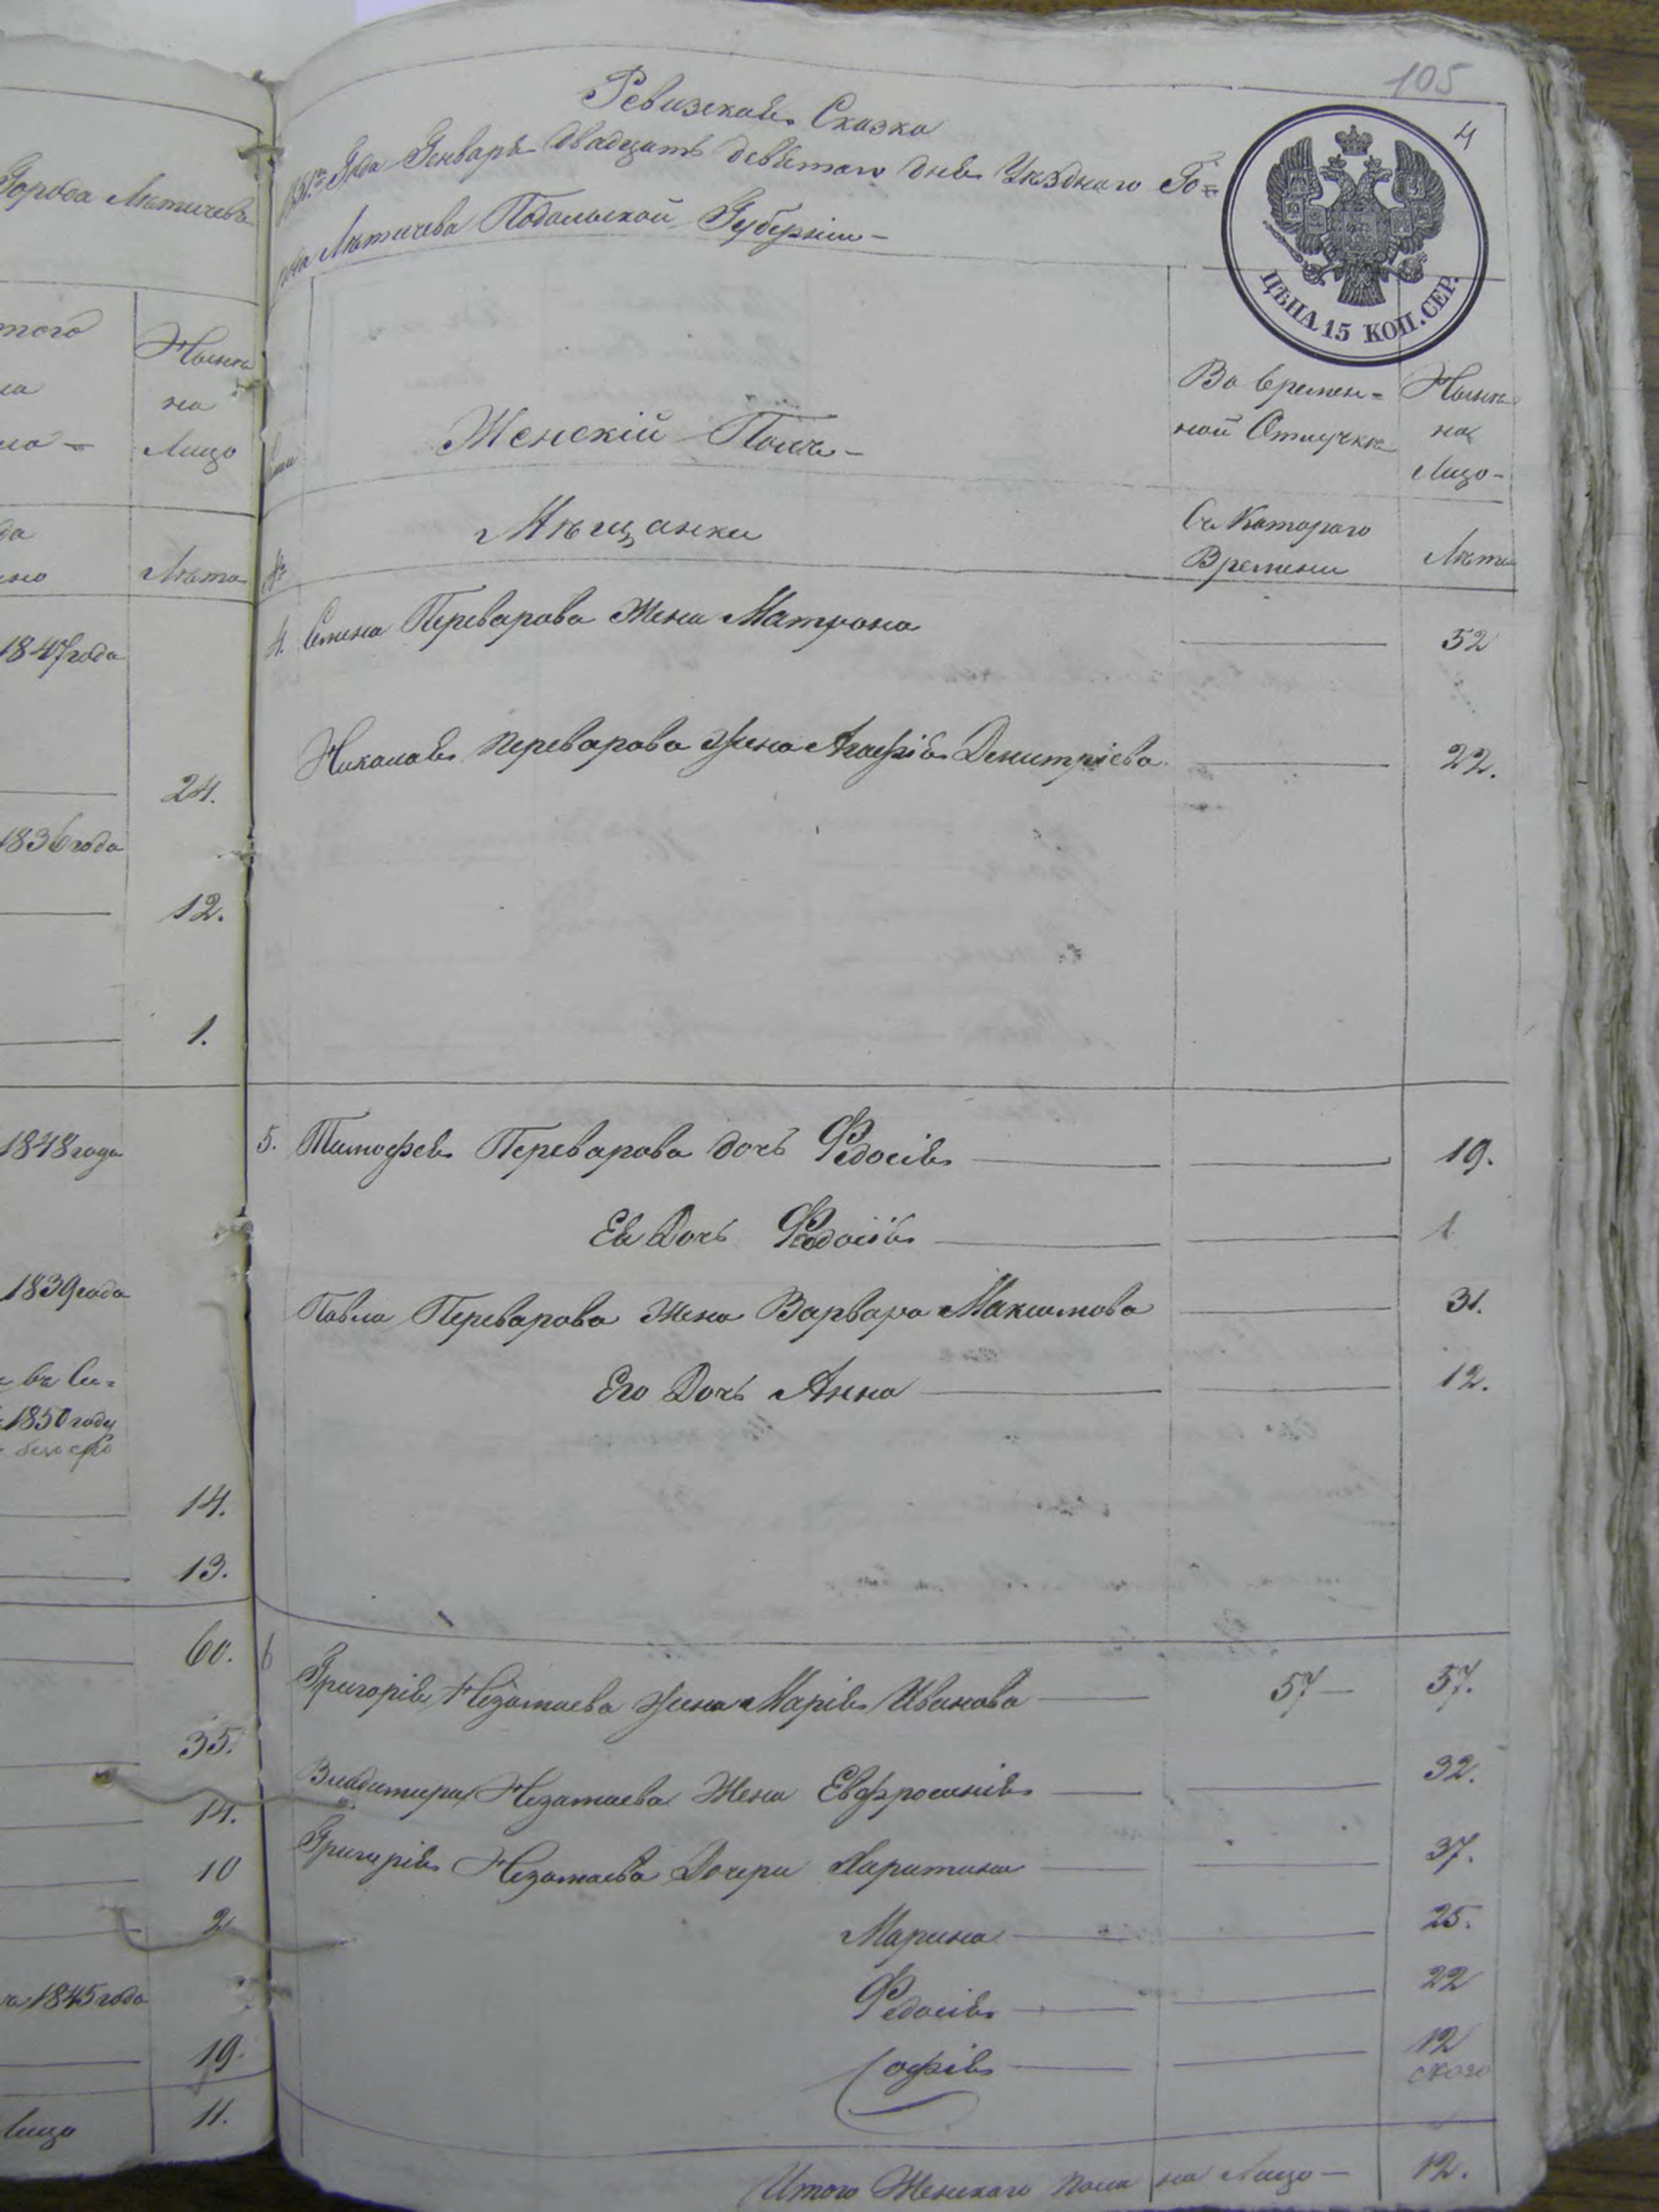 Города Летичева
того
Ныне
на
Лицо
Лета
1847 года
24.
1836 года
12.
1.
1848 года
1839 года
1850 году
14.
13.
60.
35.
14.
10
2
1845 года
19.
Лицо 11.
105
4
Ревизская Сказка
Года Генваря двадцать девятаго дня Уезднаго Го=
Летичева Подольской Губернии
ЦѢНА 15 КОП. СЕР.
Женскій Полъ
Во времен=
ной Отлучке
Ныне
на
Лицо
Мѣщанки
Съ Котораго
Времени
Лета
4. Семена Переварова Жена Матрона 52
Николая Переварова Жена Агафія Демитріева 22.
5. Тимофея Переварова дочь Федосія 19.
Ея Дочь Феодосія 1
Павла Переварова Жена Варвара Максимова 31.
Его Дочь Анна 12.
6 Григорія Незамаева Жена Марія Иванова 57 57.
Владимира Незамаева Жена Евфросинія 32.
Григорія Незамаева Дочери Харитина 37.
Марина 25.
Федосія 22
Софія 12
Итого Женскаго пола на Лицо 12.